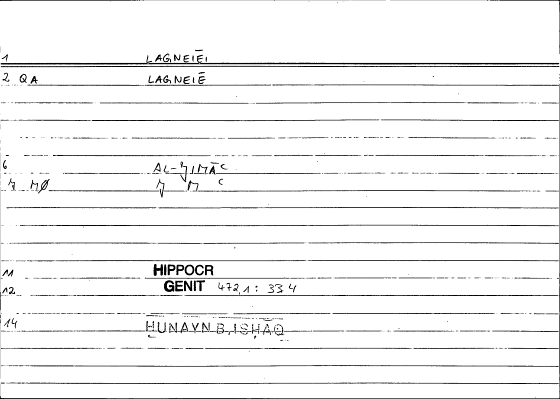 1 LAGNEIĒI
2 QA LAGNEIĒ
6 AL-ǦIMĀʿ
Ǧ M ʿ
11 HIPPOCR
12 GENIT 472,1: 33 4
14 ḤUNAYN B. ISḤĀQ